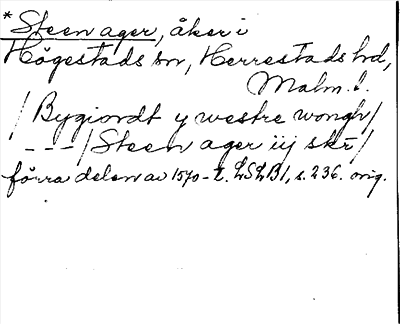 * Steen ager, åker i
Högestads sn, Herrestads hd,
Malm. l.
/ Bygiordt y westre wongh /
--- / Steen ager iij skr /
förra delen av 1570-t. LSLB1, s. 236. orig.